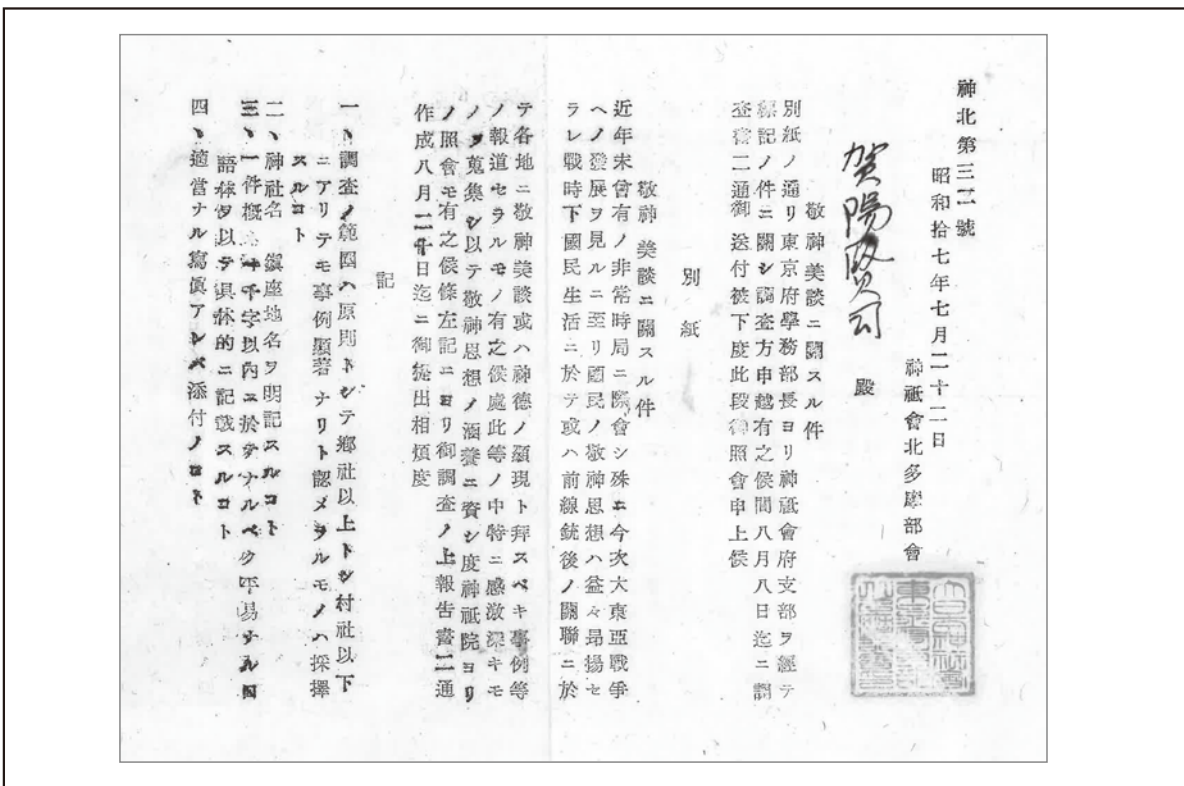 神北第三二號
昭和拾七年七月二十二日
神祇會北多摩部會
賀陽賢司 殿
敬神美談ニ關スル件
別紙ノ通リ東京府學務部長ヨリ神祇會府支部ヲ經テ
標記ノ件ニ關シ調査方申越有之候間八月八日迄ニ調
査書二通御送付被下度此段御照會申上候
別紙
敬神美談ニ關スル件
近年未曾有ノ非常時局ニ際會シ殊ニ今次大東亞戰爭
ヘノ發展ヲ見ルニ至リ國民ノ敬神思想ハ益々昻揚セ
ラレ戰時下國民生活ニ於テ或ハ前線銃後ノ關聯ニ於
テ各地ニ敬神美談或ハ神德ノ顯現ト拜スベキ事例等
ノ報道セラルモノ有之候處此等ノ中特ニ感激深キモ
ノヲ蒐集シ以テ敬神思想ノ涵養ニ資シ度神祇院ヨリ
ノ照會モ有之候條左記ニヨリ御調査ノ上報告書二通
作成八月二十日迄ニ御提出相煩度
記
一、調査ノ範圍ハ原則トシテ鄕社以上トシ村社以下
ニアリテモ事例顯著ナリト認メラルモノハ採擇
スルコト
二、神社名 鎭座地名ヲ明記スルコト
三、一件概ネ一千字以內ニ於テナルベク平易ナル口
語体ヲ以テ具体的ニ記載スルコト
四、適當ナル寫眞アレバ添付ノコト